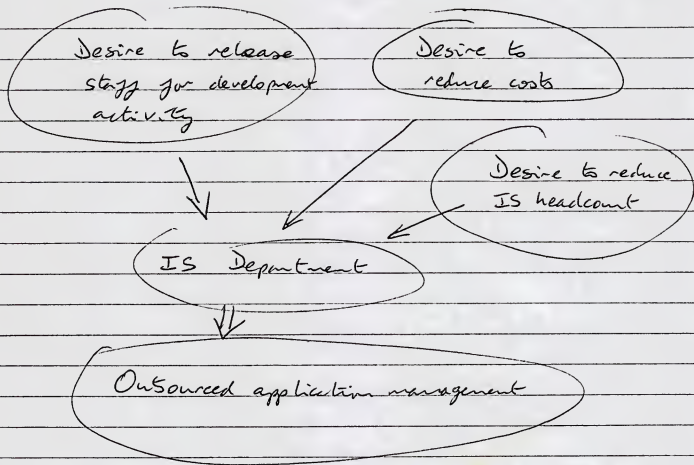 Desire to release
staff for development
activity
Desire to
reduce costs
Desire to reduce
IS headcount
IS Department
Outsourced application management